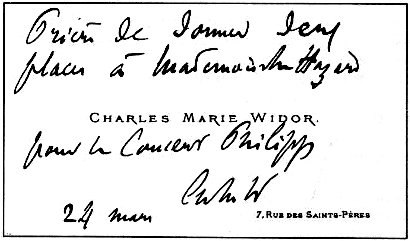 Prière de donner deux
places à Mademoiselle Hazard
CHARLES MARIE WIDOR.
pour le Concert Philipp
ChMW
24 mars
7, RUE DES SAINTS-PÈRES